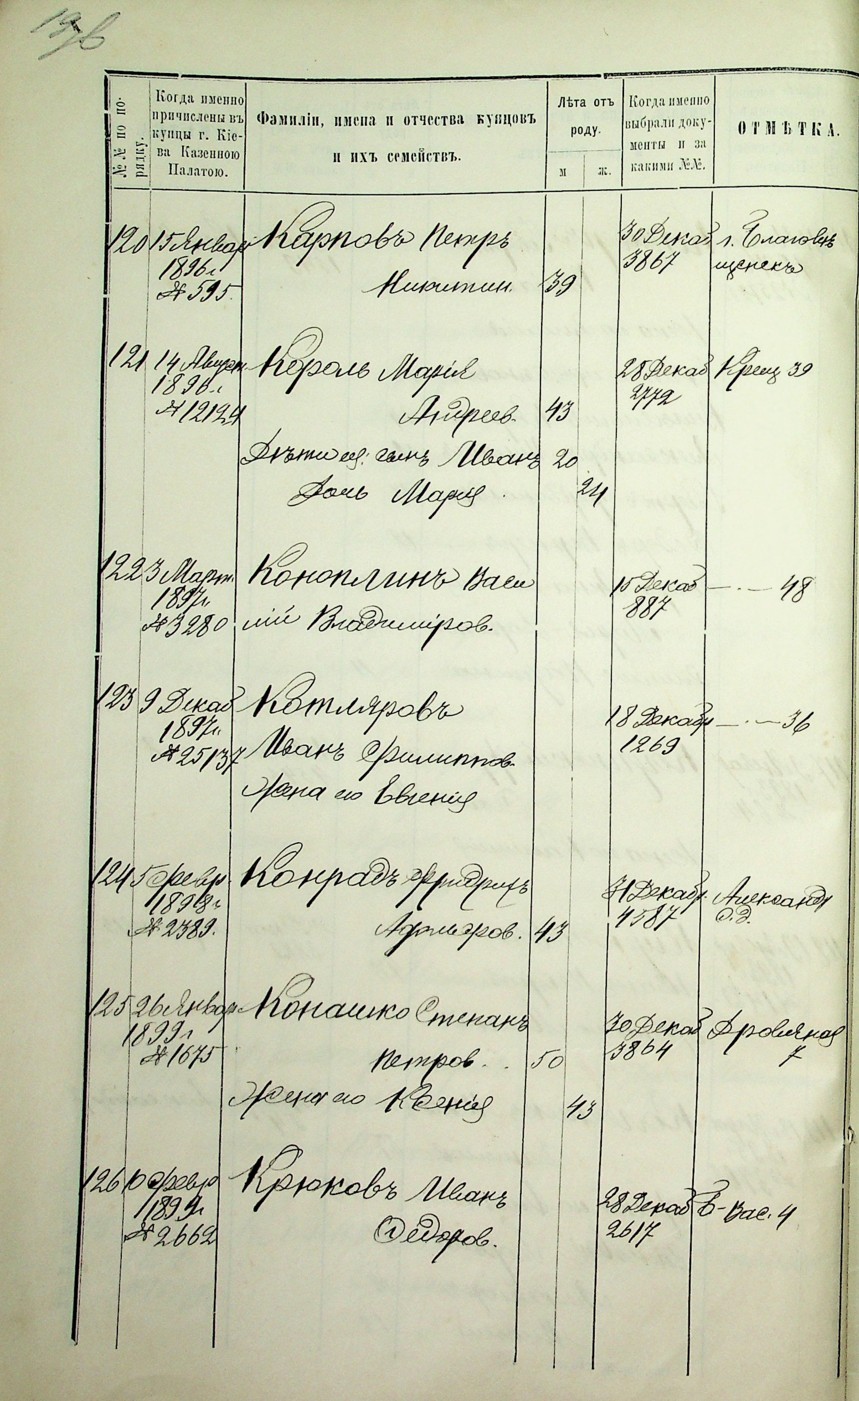 №№ по по-
рядку.
Когда именно
причислены въ
купцы г. Кіе-
ва Казенною
Палатою.
Фамиліи, имена и отчества купцовъ
и ихъ семействъ.
Лѣта отъ
роду.
м
ж.
Когда именно
выбрали доку-
менты и за
какими №№.
ОТМѢТКА.
120 15 Январ Карповъ Петръ 30 Декаб г. Благовѣ
1896 г. 3867 щенскъ
№ 595. Никитин. 39
121 14 Король Марія 28 Декаб Крещ 39
1896 г. 2772
№ 12124 Андреев. 43
Дѣти ея: сынъ Иванъ 20
Дочь Марія 24
122 3 Март. Коноплинъ Васи 15 Декаб —·— 48
1897 г. 887
№ 3280 лій Владиміров.
123 9 Декаб Котляровъ 18 Декабр —·— 36
1897 г. 1269
№ 25137 Иванъ Филиппов.
Жена его Евгенія
124 5 Февр. Конрадъ Фридрихъ 31 Декабр. Александр
1898 г. 4587 с. д.
№ 2389. 43
125 26 Январ Конашко Степанъ 30 Декаб Дровяная
1899 г. 3864 7
№ 1675 Петров. 50
Жена его Ксенія 43
126 10 Февр Крюковъ Иванъ 28 Декаб Б-Вас. 4
1899 г. 2617
№ 2662 Федоров.